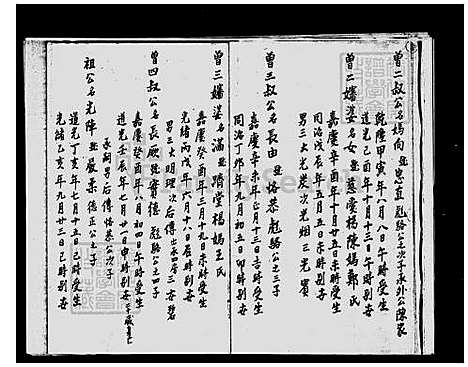 曾二叔公名媽向 號忠直 彪駱公之次子承外公陳家
乾隆甲寅年八月八日午時受生
道光 年十月十三日午時別世
曾二嬸婆名女 號慈愛楊陳媽鄭氏
嘉慶辛酉年十月廿五日未時受生
同治戊辰年五月五日未時別世
男三 大光裘 次光 三光實
曾三叔公名長由 號恪恭 彪駱公之三子
嘉慶辛未年正月十三日吉時受生
同治丁卯年九月初五日卯時別世
曾三嬸婆名滿 號 堂楊媽王氏
嘉慶癸酉年三月十九日未時受生
光緒丙戌年六月十八日辰時別世
男三 大明理 次后傳 出承四房 三春碧
曾四叔公名長 號寶德 彪駱公之四子
嘉慶癸酉年四月初四日午時受生
道光壬辰年七月廿日申時別世
承嗣男后傳恪恭公次子
祖公名光陣 號嚴柔 德正公之子
道光丁亥年七月十五日巳時受生
光緒乙亥年九月廿三日巳時別世